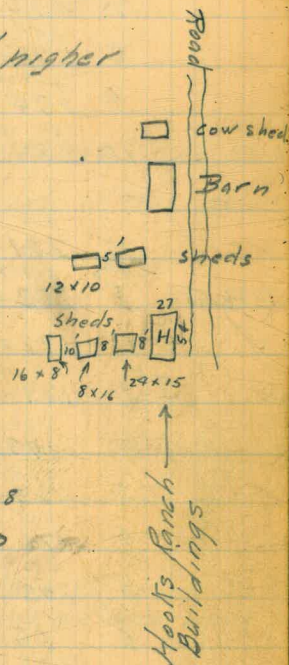 Road
higher
cow shed
Barn
5'
sheds
12 x 10
27
sheds
H
54
10'
8'
8'
16 x 8
8 x 16
24 x 15
8
Hooks Ranch
Buildings